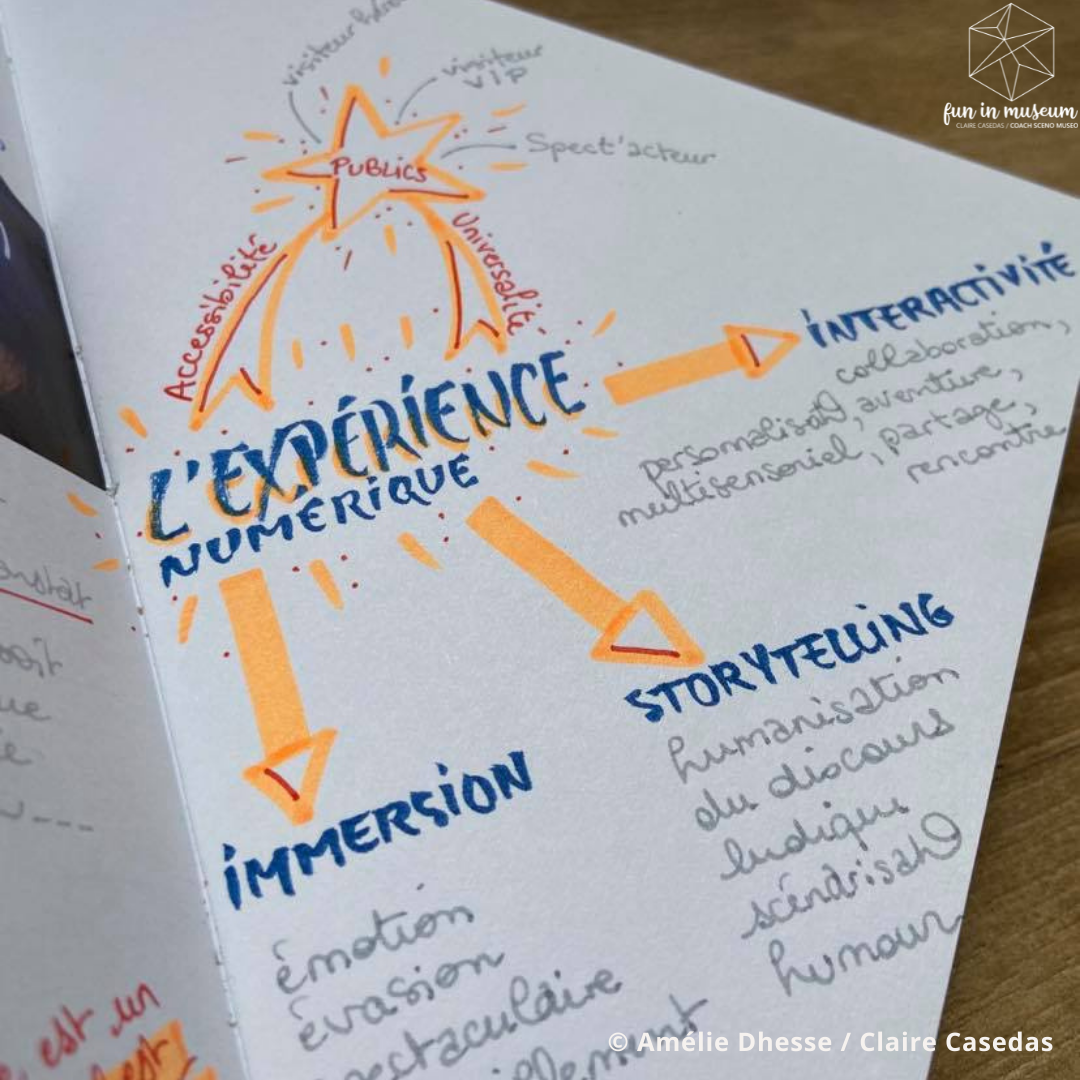 visiteur
visiteur
VIP
Spect'acteur
PUBLICS
Accessibilité
Universalité
L'EXPÉRIENCE
NUMÉRIQUE
INTERACTIVITÉ
collaboration,
personnalisat°, aventure,
multisensoriel, partage,
rencontre
STORYTELLING
humanisation
du discours
ludique
scénarisat°
humour
IMMERSION
émotion
évasion
spectaculaire
est un
fun in museum
CLAIRE CASEDAS / COACH SCENO MUSEO
© Amélie Dhesse / Claire Casedas